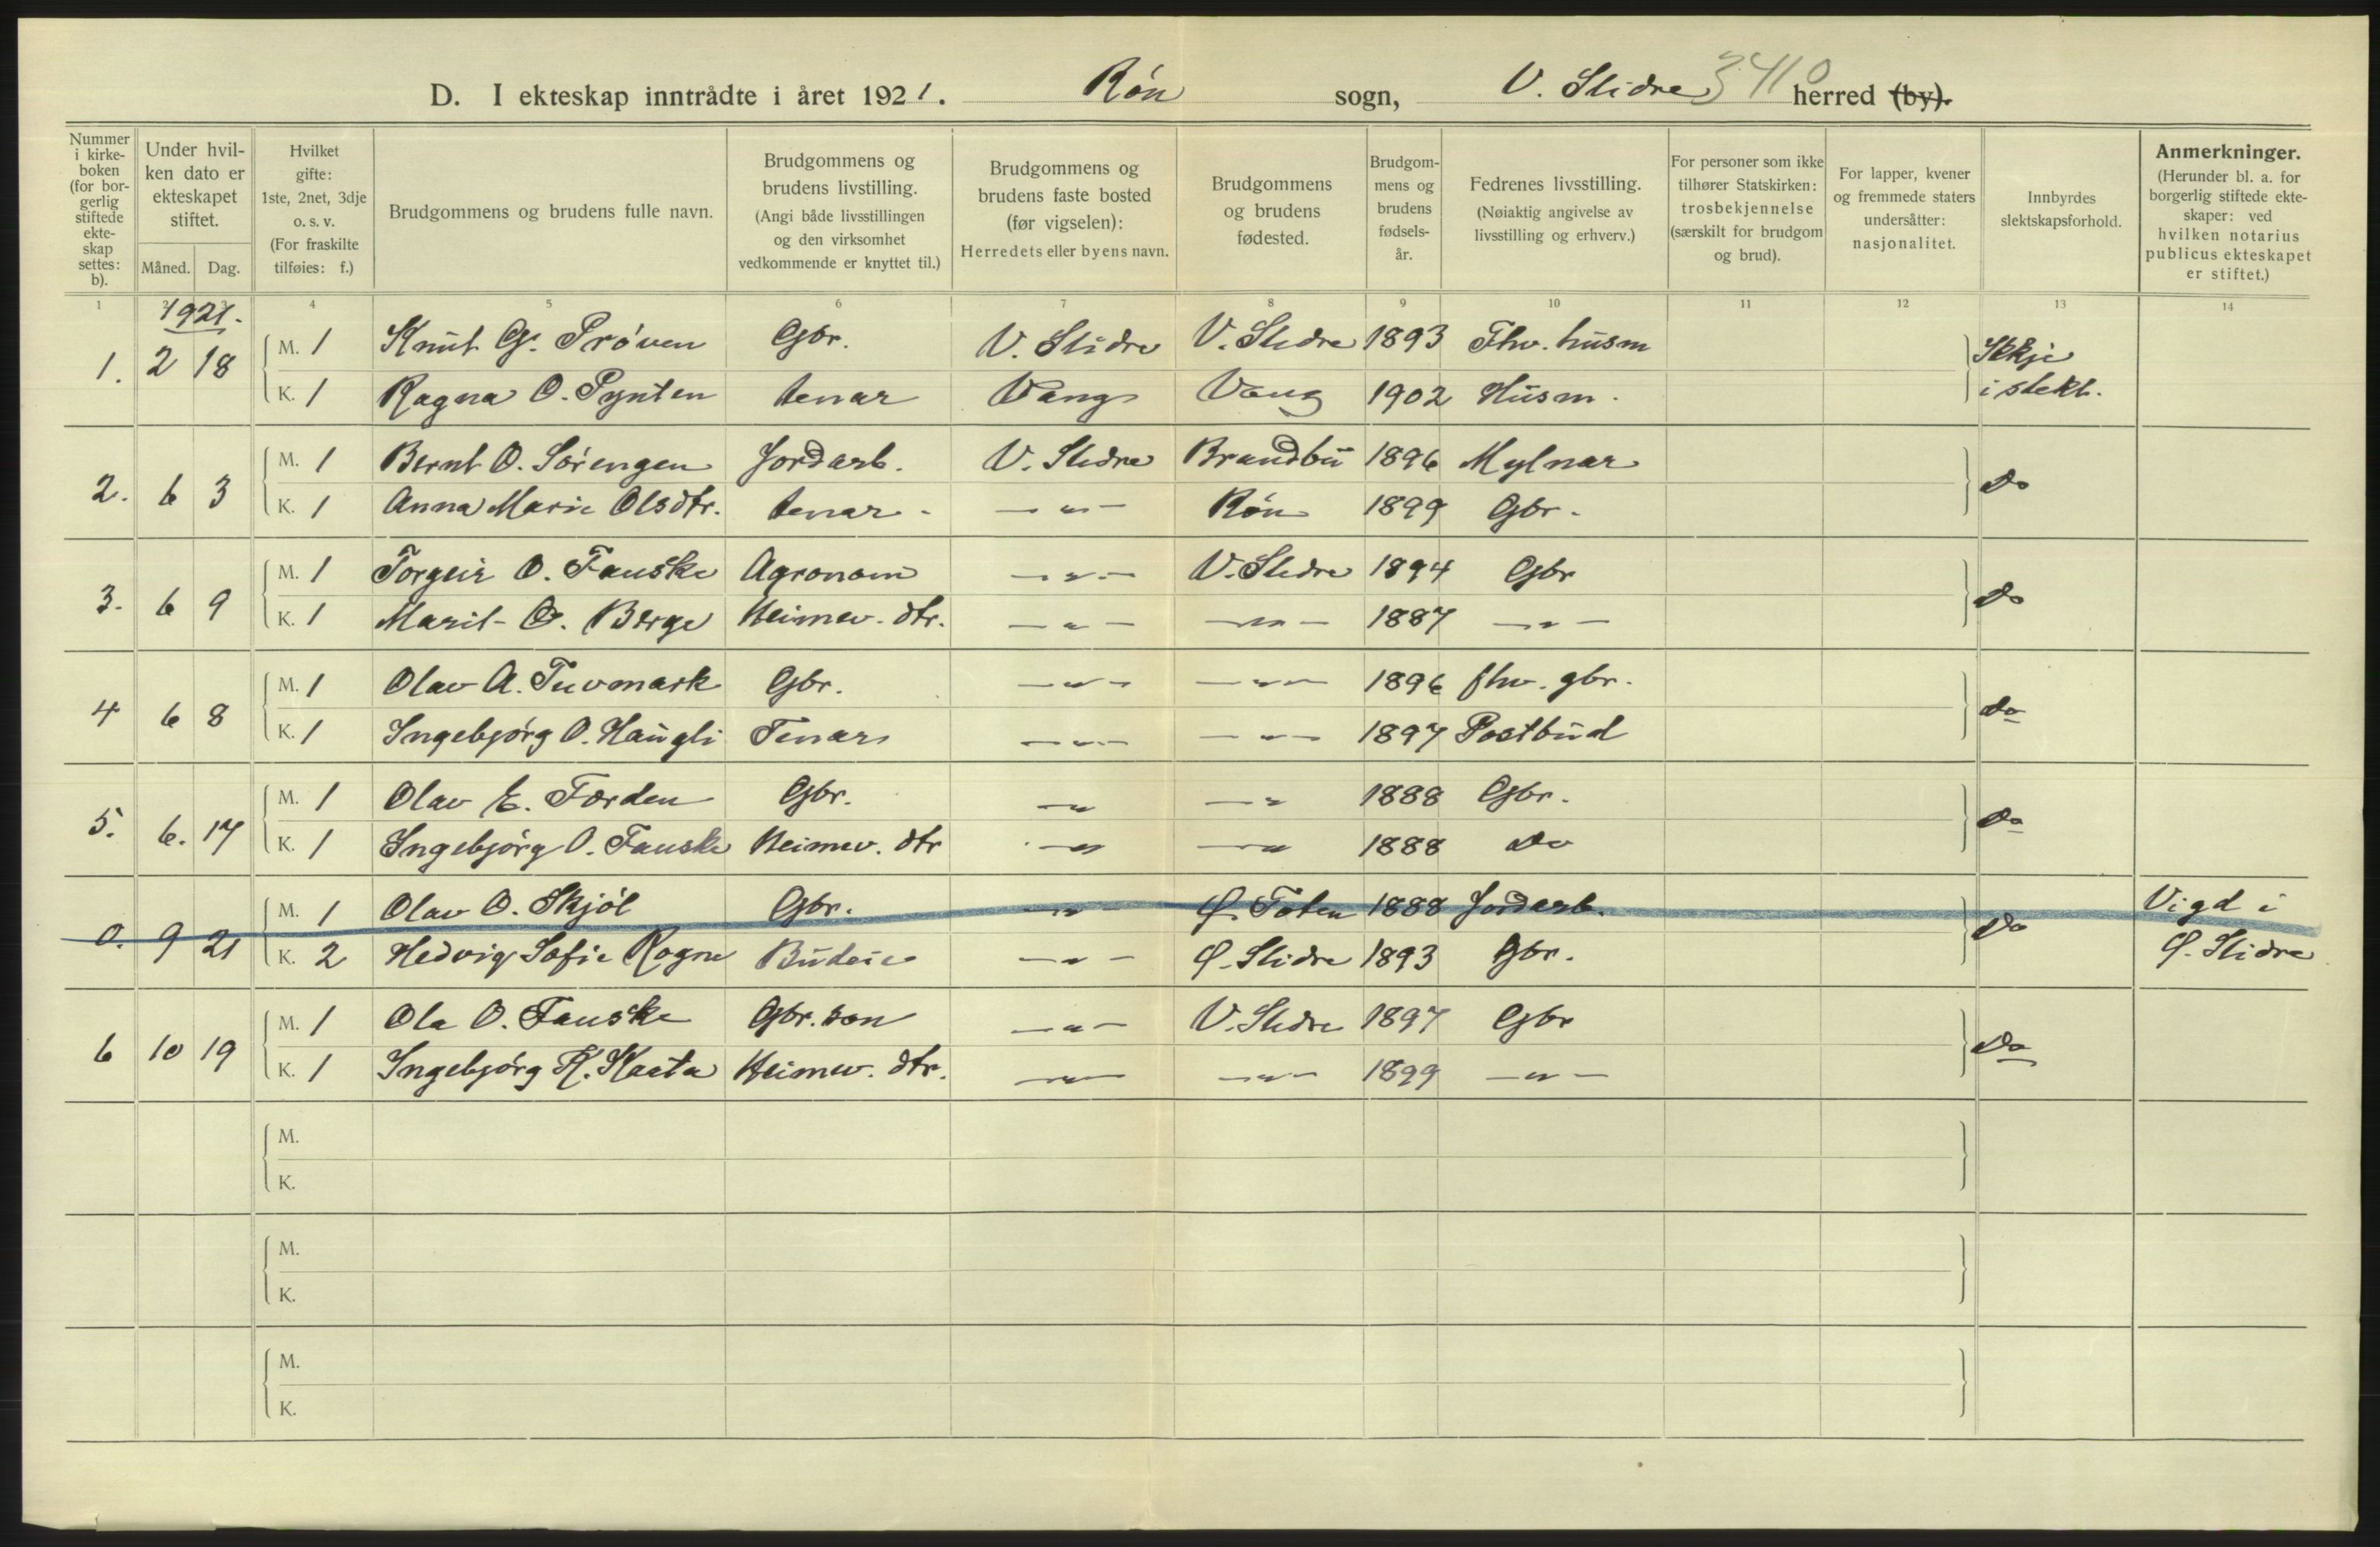 D. I ekteskap inntrådte i året 1921. Røn sogn, V. Slidre 3410 herred (by).
Nummer i kirkeboken (for borgerlig stiftede ekteskap settes: b).
Under hvilken dato er ekteskapet stiftet.
Måned. Dag.
Hvilket gifte: 1ste, 2net, 3dje o. s. v. (For fraskilte tilføies: f.)
Brudgommens og brudens fulle navn.
Brudgommens og brudens livstilling. (Angi både livsstillingen og den virksomhet vedkommende er knyttet til.)
Brudgommens og brudens faste bosted (før vigselen): Herredets eller byens navn.
Brudgommens og brudens fødested.
Brudgommens og brudens fødselsår.
Fedrenes livsstilling. (Nøiaktig angivelse av livsstilling og erhverv.)
For personer som ikke tilhører Statskirken: trosbekjennelse (særskilt for brudgom og brud).
For lapper, kvener og fremmede staters undersåtter: nasjonalitet.
Innbyrdes slektskapsforhold.
Anmerkninger. (Herunder bl. a. for borgerlig stiftede ekteskaper: ved hvilken notarius publicus ekteskapet er stiftet.)
1 2 3 4 5 6 7 8 9 10 11 12 13 14
1921.
1. 2 18 M. 1 Knut G. Prøven Gbr. V. Slidre V. Slidre 1893 Fhv. husm Ikkje
K. 1 Ragna O. Pynten tenar Vang Vang 1902 Husm. i slekt.
2. 6 3 M. 1 Bernt O. Sørengen Jordarb. V. Slidre Brandbu 1896 Mylnar Do
K. 1 Anna Marie Olsdtr. tenar - — " — Røn 1899 Gbr.
3. 6 9 M. 1 Torgeir O. Fauske Agronom — " — V. Slidre 1894 Gbr Do
K. 1 Marit O. Berge Heimev. dtr. — " — — " — 1887 — " —
4 6 8 M. 1 Olav A. Tuvmark Gbr. — " — — " — 1896 fhv. gbr. Do
K. 1 Ingebjørg O. Haugli Tenar — " — — " — 1897 Postbud
5. 6. 17 M. 1 Olav E. Førden Gbr. — " — " 1888 Gbr. Do
K. 1 Ingebjørg O. Fauske Heimev. dtr — " — " 1888 Do
0. 9 21 M. 1 Olav O. Skjøl Gbr. — " — Ø. Toten 1888 Jordarb. Do Vigd i
K. 2 Hedvig Sofie Rogne Budeie — " — Ø. Slidre 1893 Gbr. Ø. Slidre
6 10 19 M. 1 Ola O. Fauske Gbr. son — " — V. Slidre 1897 Gbr Do
K. 1 Ingebjørg K. Kasta Heimev. dtr. — " — — " — 1899 — " —
M.
K.
M.
K.
M.
K.